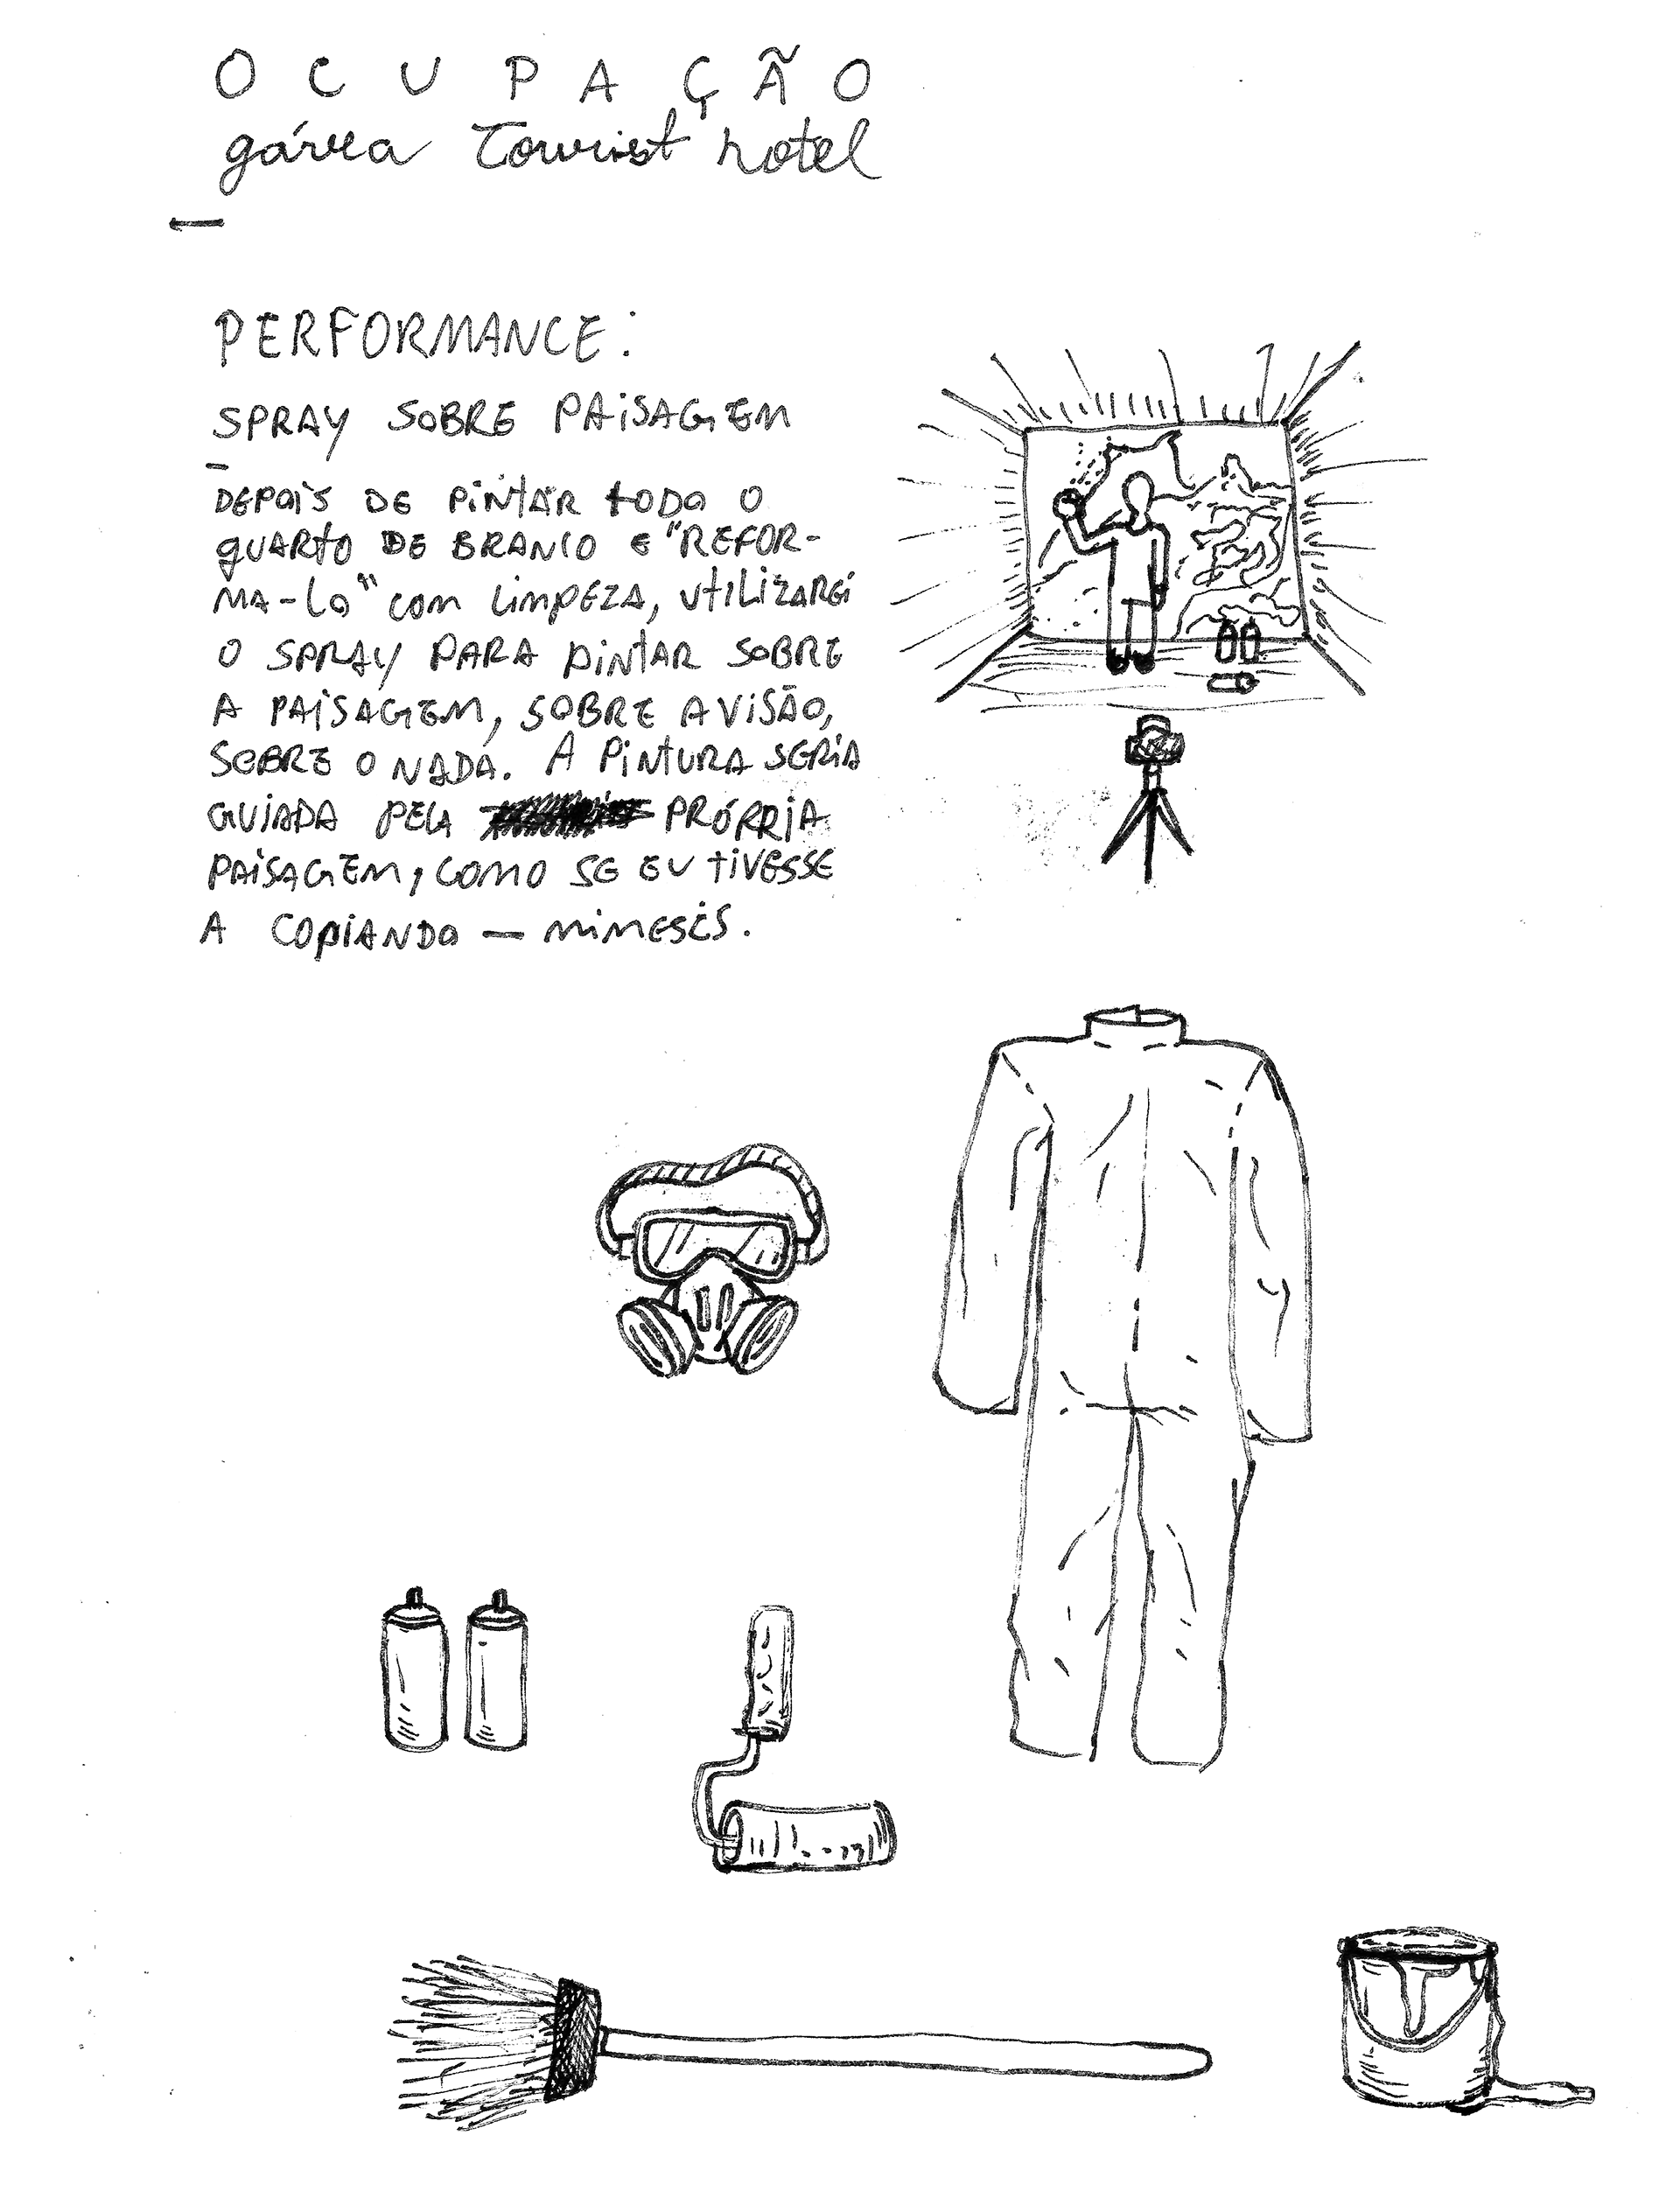 OCUPAÇÃO
gávea Tourist hotel
PERFORMANCE:
SPRAY SOBRE PAISAGEM
DEPOIS DE PINTAR TODO O
QUARTO DE BRANCO E "REFOR-
MA-LO" COM LIMPEZA, UTILIZAREI
O SPRAY PARA PINTAR SOBRE
A PAISAGEM, SOBRE A VISÃO,
SOBRE O NADA. A PINTURA SERIA
GUIADA PELA PRÓPRIA
PAISAGEM, COMO SE EU TIVESSE
A COPIANDO — MIMESES.